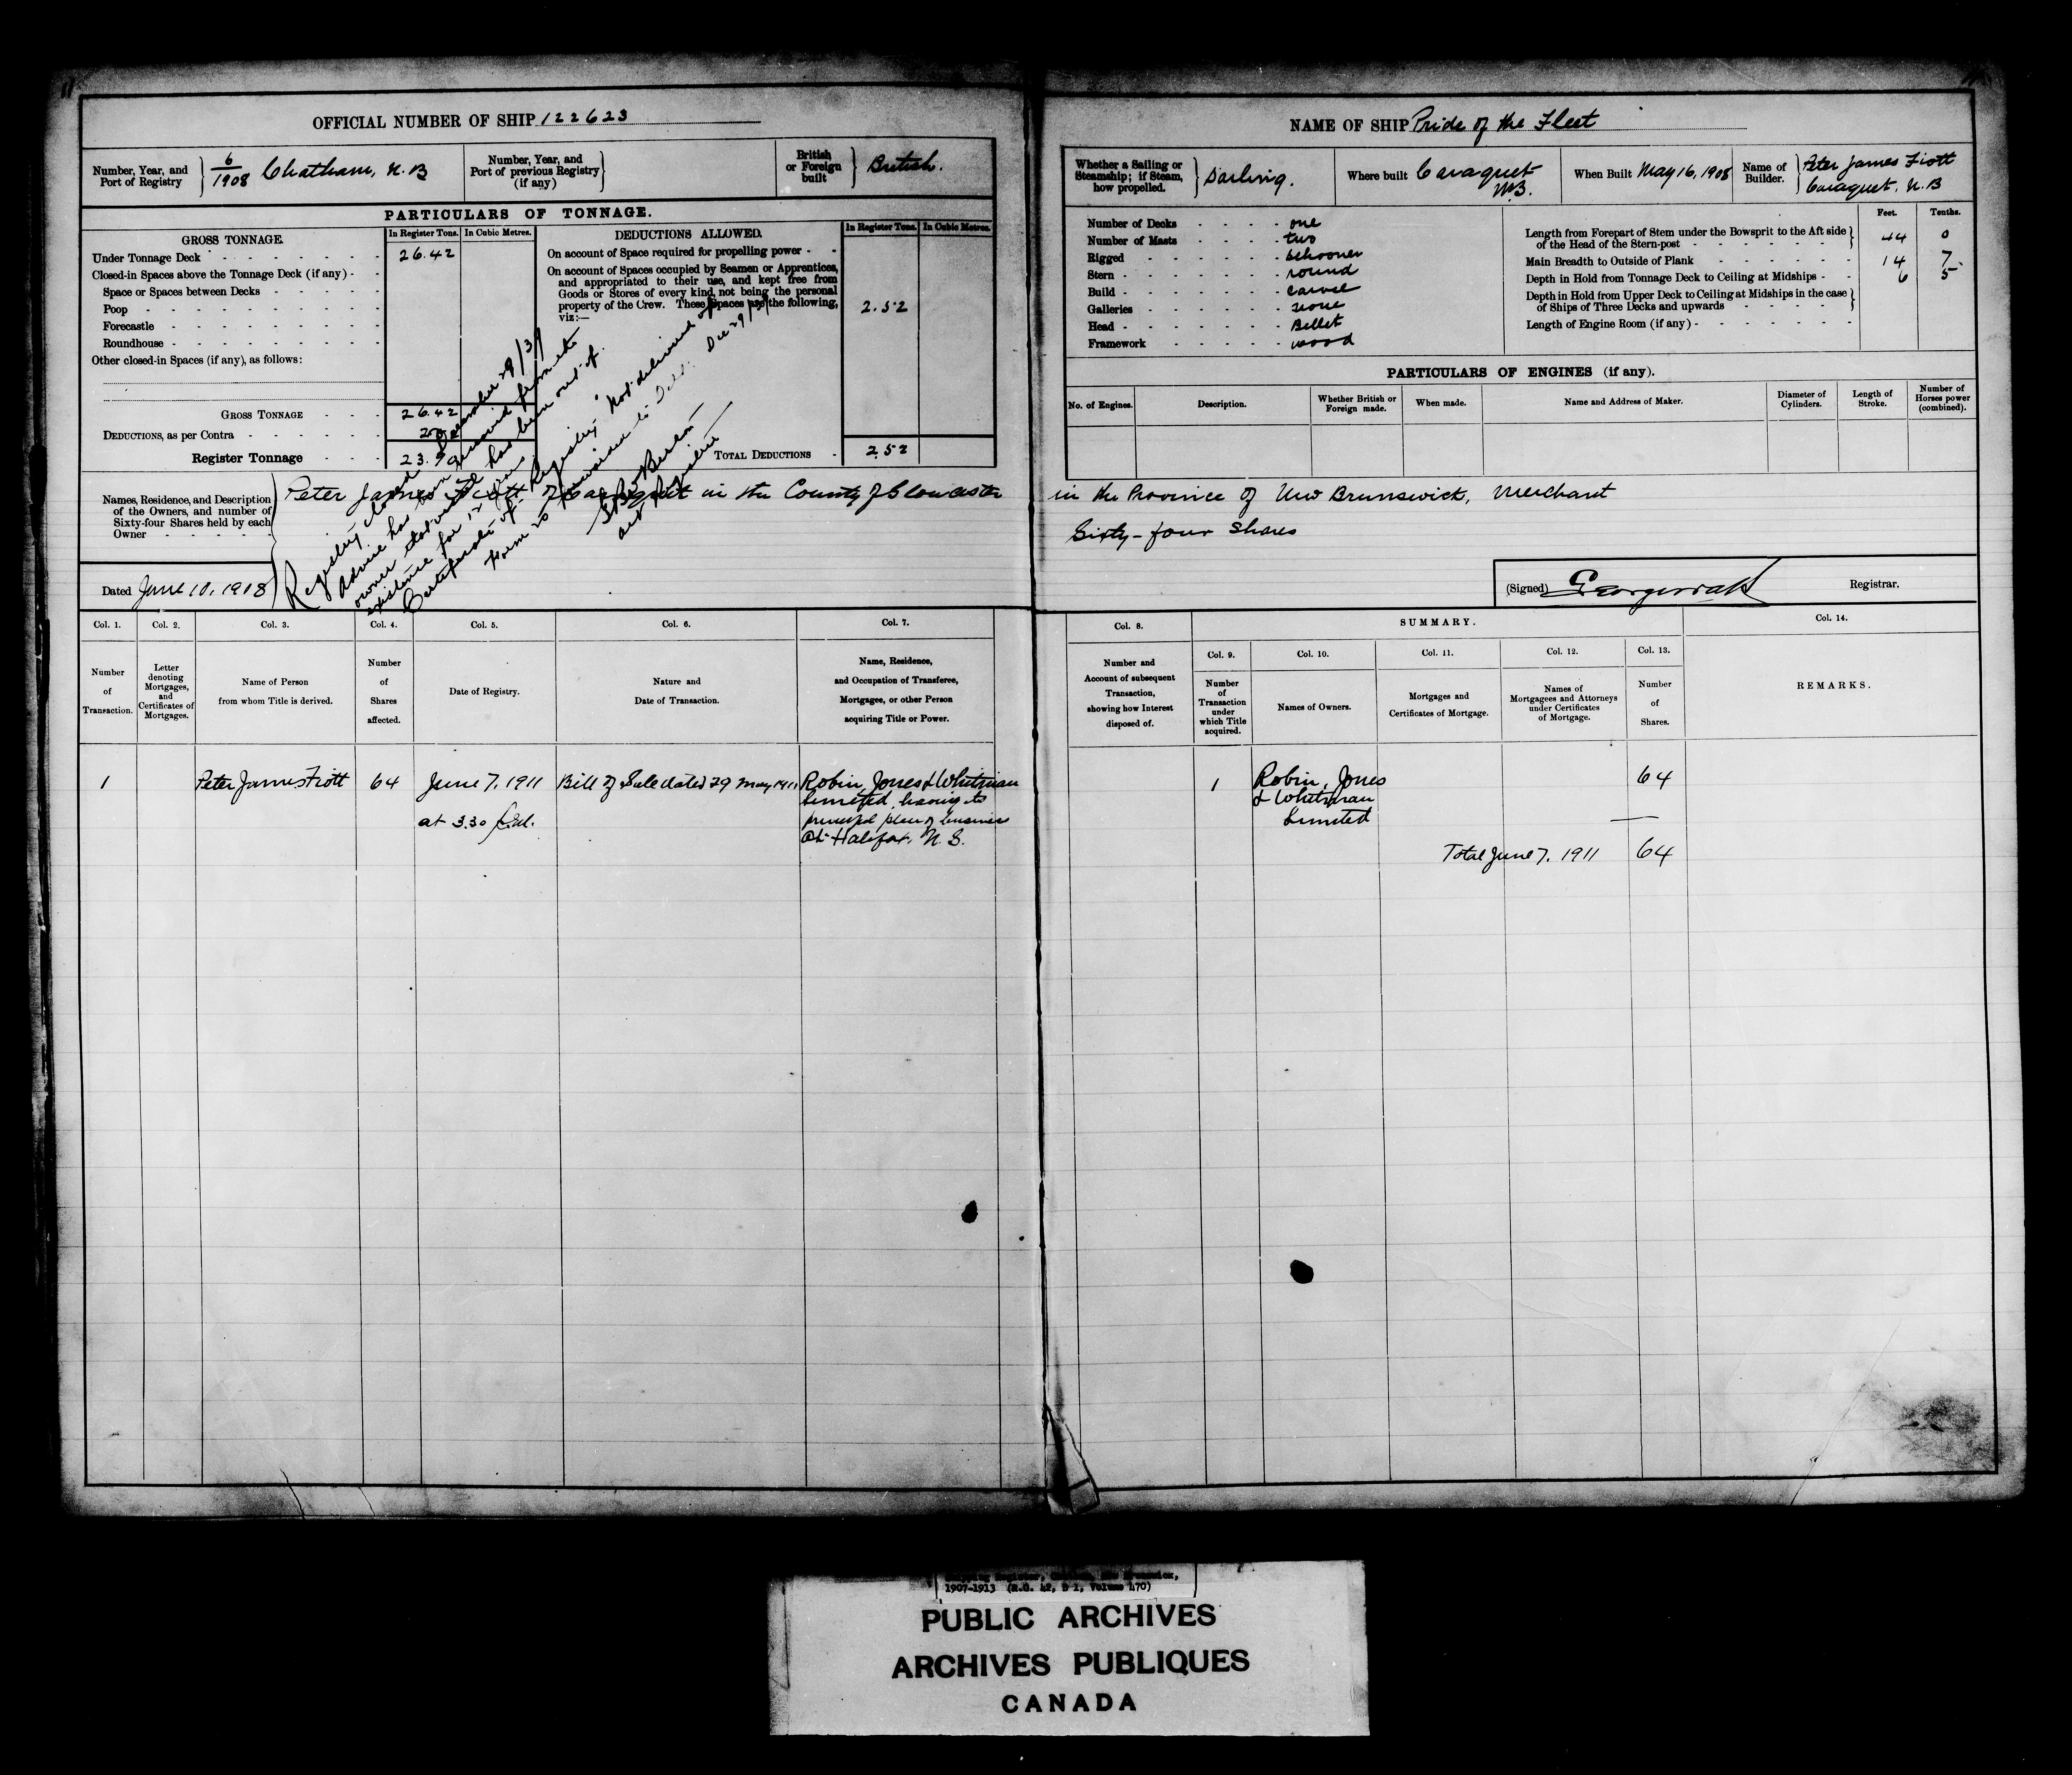 OFFICIAL NUMBER OF SHIP 122623
Number, Year, and Port of Registry 6/1908 Chatham, N.B
Number, Year, and Port of previous Registry (if any)
British or Foreign built British.
PARTICULARS OF TONNAGE.
GROSS TONNAGE. In Register Tons. In Cubic Metres.
Under Tonnage Deck - 26.42
Closed-in Spaces above the Tonnage Deck (if any) -
Space or Spaces between Decks -
Poop -
Forecastle -
Roundhouse -
Other closed-in Spaces (if any), as follows:
GROSS TONNAGE - 26.42
DEDUCTIONS, as per Contra -
Register Tonnage - 23.90
DEDUCTIONS ALLOWED. In Register Tons. In Cubic Metres.
On account of Space required for propelling power -
On account of Spaces occupied by Seamen or Apprentices,
and appropriated to their use, and kept free from
Goods or Stores of every kind, not being the personal
property of the Crew. These Spaces are the following, 2.52
viz:—
TOTAL DEDUCTIONS - 2.52
Names, Residence, and Description
of the Owners, and number of
Sixty-four Shares held by each
Owner
Peter James Fiott of Caraquet in the County of Gloucester
Registry closed December 29/39
Advice has been received from the
owner that vessel has been out of
existence for 12 years
Certificate of Registry Not delivered up
Form 20 forwarded to Dec 29/39
Dated June 10, 1908
NAME OF SHIP Pride of the Fleet
Whether a Sailing or Steamship; if Steam, how propelled. Sailing.
Where built Caraquet N.B.
When Built May 16, 1908
Name of Builder. Peter James Fiott Caraquet, N.B
Number of Decks - one
Number of Masts - two
Rigged - schooner
Stern - round
Build - carvel
Galleries - none
Head - Billet
Framework - wood
Feet. Tenths.
Length from Forepart of Stem under the Bowsprit to the Aft side
of the Head of the Stern-post - 44 0
Main Breadth to Outside of Plank - 14 7
Depth in Hold from Tonnage Deck to Ceiling at Midships - 6 5
Depth in Hold from Upper Deck to Ceiling at Midships in the case
of Ships of Three Decks and upwards -
Length of Engine Room (if any) -
PARTICULARS OF ENGINES (if any).
No. of Engines. Description. Whether British or Foreign made. When made. Name and Address of Maker. Diameter of Cylinders. Length of Stroke. Number of Horses power (combined).
in the Province of New Brunswick, Merchant
Sixty-four Shares
(Signed) Registrar.
Col. 1. Col. 2. Col. 3. Col. 4. Col. 5. Col. 6. Col. 7.
Number of Transaction.
Letter denoting Mortgages, and Certificates of Mortgages.
Name of Person from whom Title is derived.
Number of Shares affected.
Date of Registry.
Nature and Date of Transaction.
Name, Residence, and Occupation of Transferee, Mortgagee, or other Person acquiring Title or Power.
1 Peter James Fiott 64 June 7, 1911 Bill of Sale dated 29 May 1911 Robin, Jones & Whitman
Limited, having its
at 3.30 p.m. principal place of business
at Halifax, N.S.
Col. 8. SUMMARY. Col. 14.
Col. 9. Col. 10. Col. 11. Col. 12. Col. 13.
Number and Account of subsequent Transaction, showing how Interest disposed of.
Number of Transaction under which Title acquired.
Names of Owners.
Mortgages and Certificates of Mortgage.
Names of Mortgagees and Attorneys under Certificates of Mortgage.
Number of Shares.
REMARKS.
1 Robin, Jones 64
& Whitman
Limited
Total June 7, 1911 64
1907-1913 (R.G. 42, D 1, Volume 470)
PUBLIC ARCHIVES
ARCHIVES PUBLIQUES
CANADA